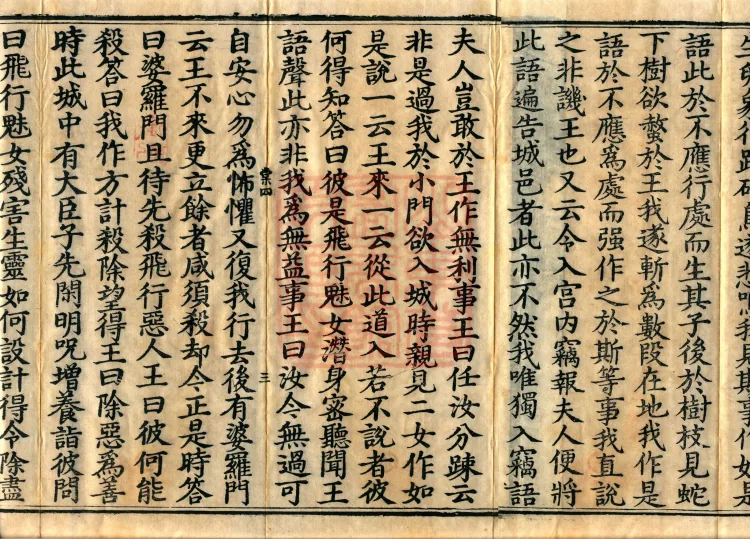 語此於不應行處而生其子後於樹枝見蛇
下樹欲螫於王我遂斬爲數段在地我作是
語於不應爲處而强作之於斯等事我直說
之非譏王也又云今入宮内竊報夫人便將
此語遍告城邑者此亦不然我唯獨入竊語
夫人豈敢於王作無利事王曰任汝分踈云
非是過我於小門欲入城時親見二女作如
是說一云王來一云從此道入若不說者彼
何得知答曰彼是飛行魅女潛身密聽聞王
語聲此亦非我爲無益事王曰汝今無過可
棠四 三
自安心勿爲怖懼又復我行去後有婆羅門
云王不來更立餘者咸須殺却今正是時答
曰婆羅門且待先殺飛行惡人王曰彼何能
殺答曰我作方計殺除望得王曰除惡爲善
時此城中有大臣子先閑明呪增養詣彼問
曰飛行魅女殘害生靈如何設計得令除盡